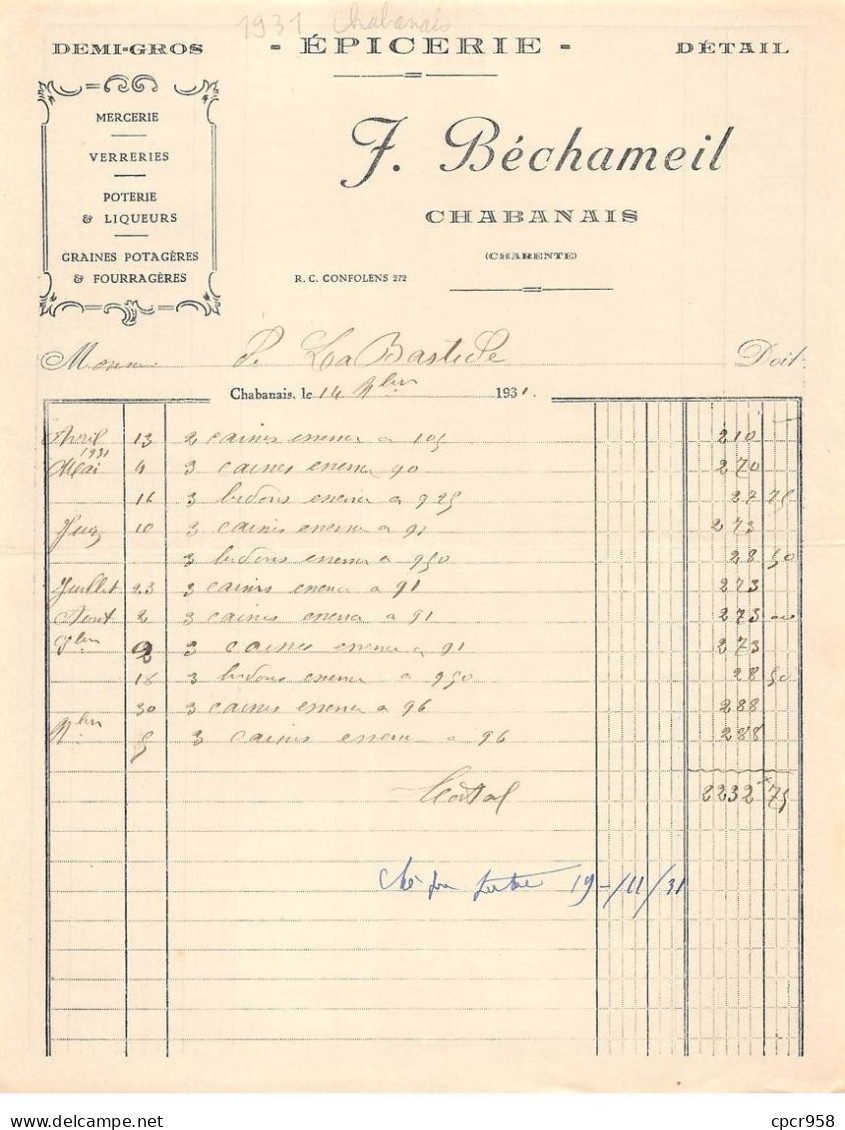 1931 Chabanais
DEMI-GROS - ÉPICERIE - DÉTAIL
MERCERIE
VERRERIES
POTERIE
& LIQUEURS
GRAINES POTAGÈRES
& FOURRAGÈRES
J. Béchameil
CHABANAIS
(CHARENTE)
R. C. CONFOLENS 272
M P. La Bastide Doit:
Chabanais, le 14 9bre 1931.
Avril 13 2 caisses essence a 105 210
1931
Mai 4 3 caisses essence 90 270
16 3 bidons essence a 925 27 75
Juin 10 3 caisses essence a 91 273
3 bidons essence a 950 28 50
Juillet 23 3 caisses essence a 91 273
Aout 2 3 caisses essence a 91 273
7bre 2 3 caisses essence a 91 273
18 3 bidons essence a 950 28 50
30 3 caisses essence a 96 288
9bre 5 3 caisses essence a 96 288
Total 2232 75
19-/11/31
CPCR www.delcampe.net cpcr958